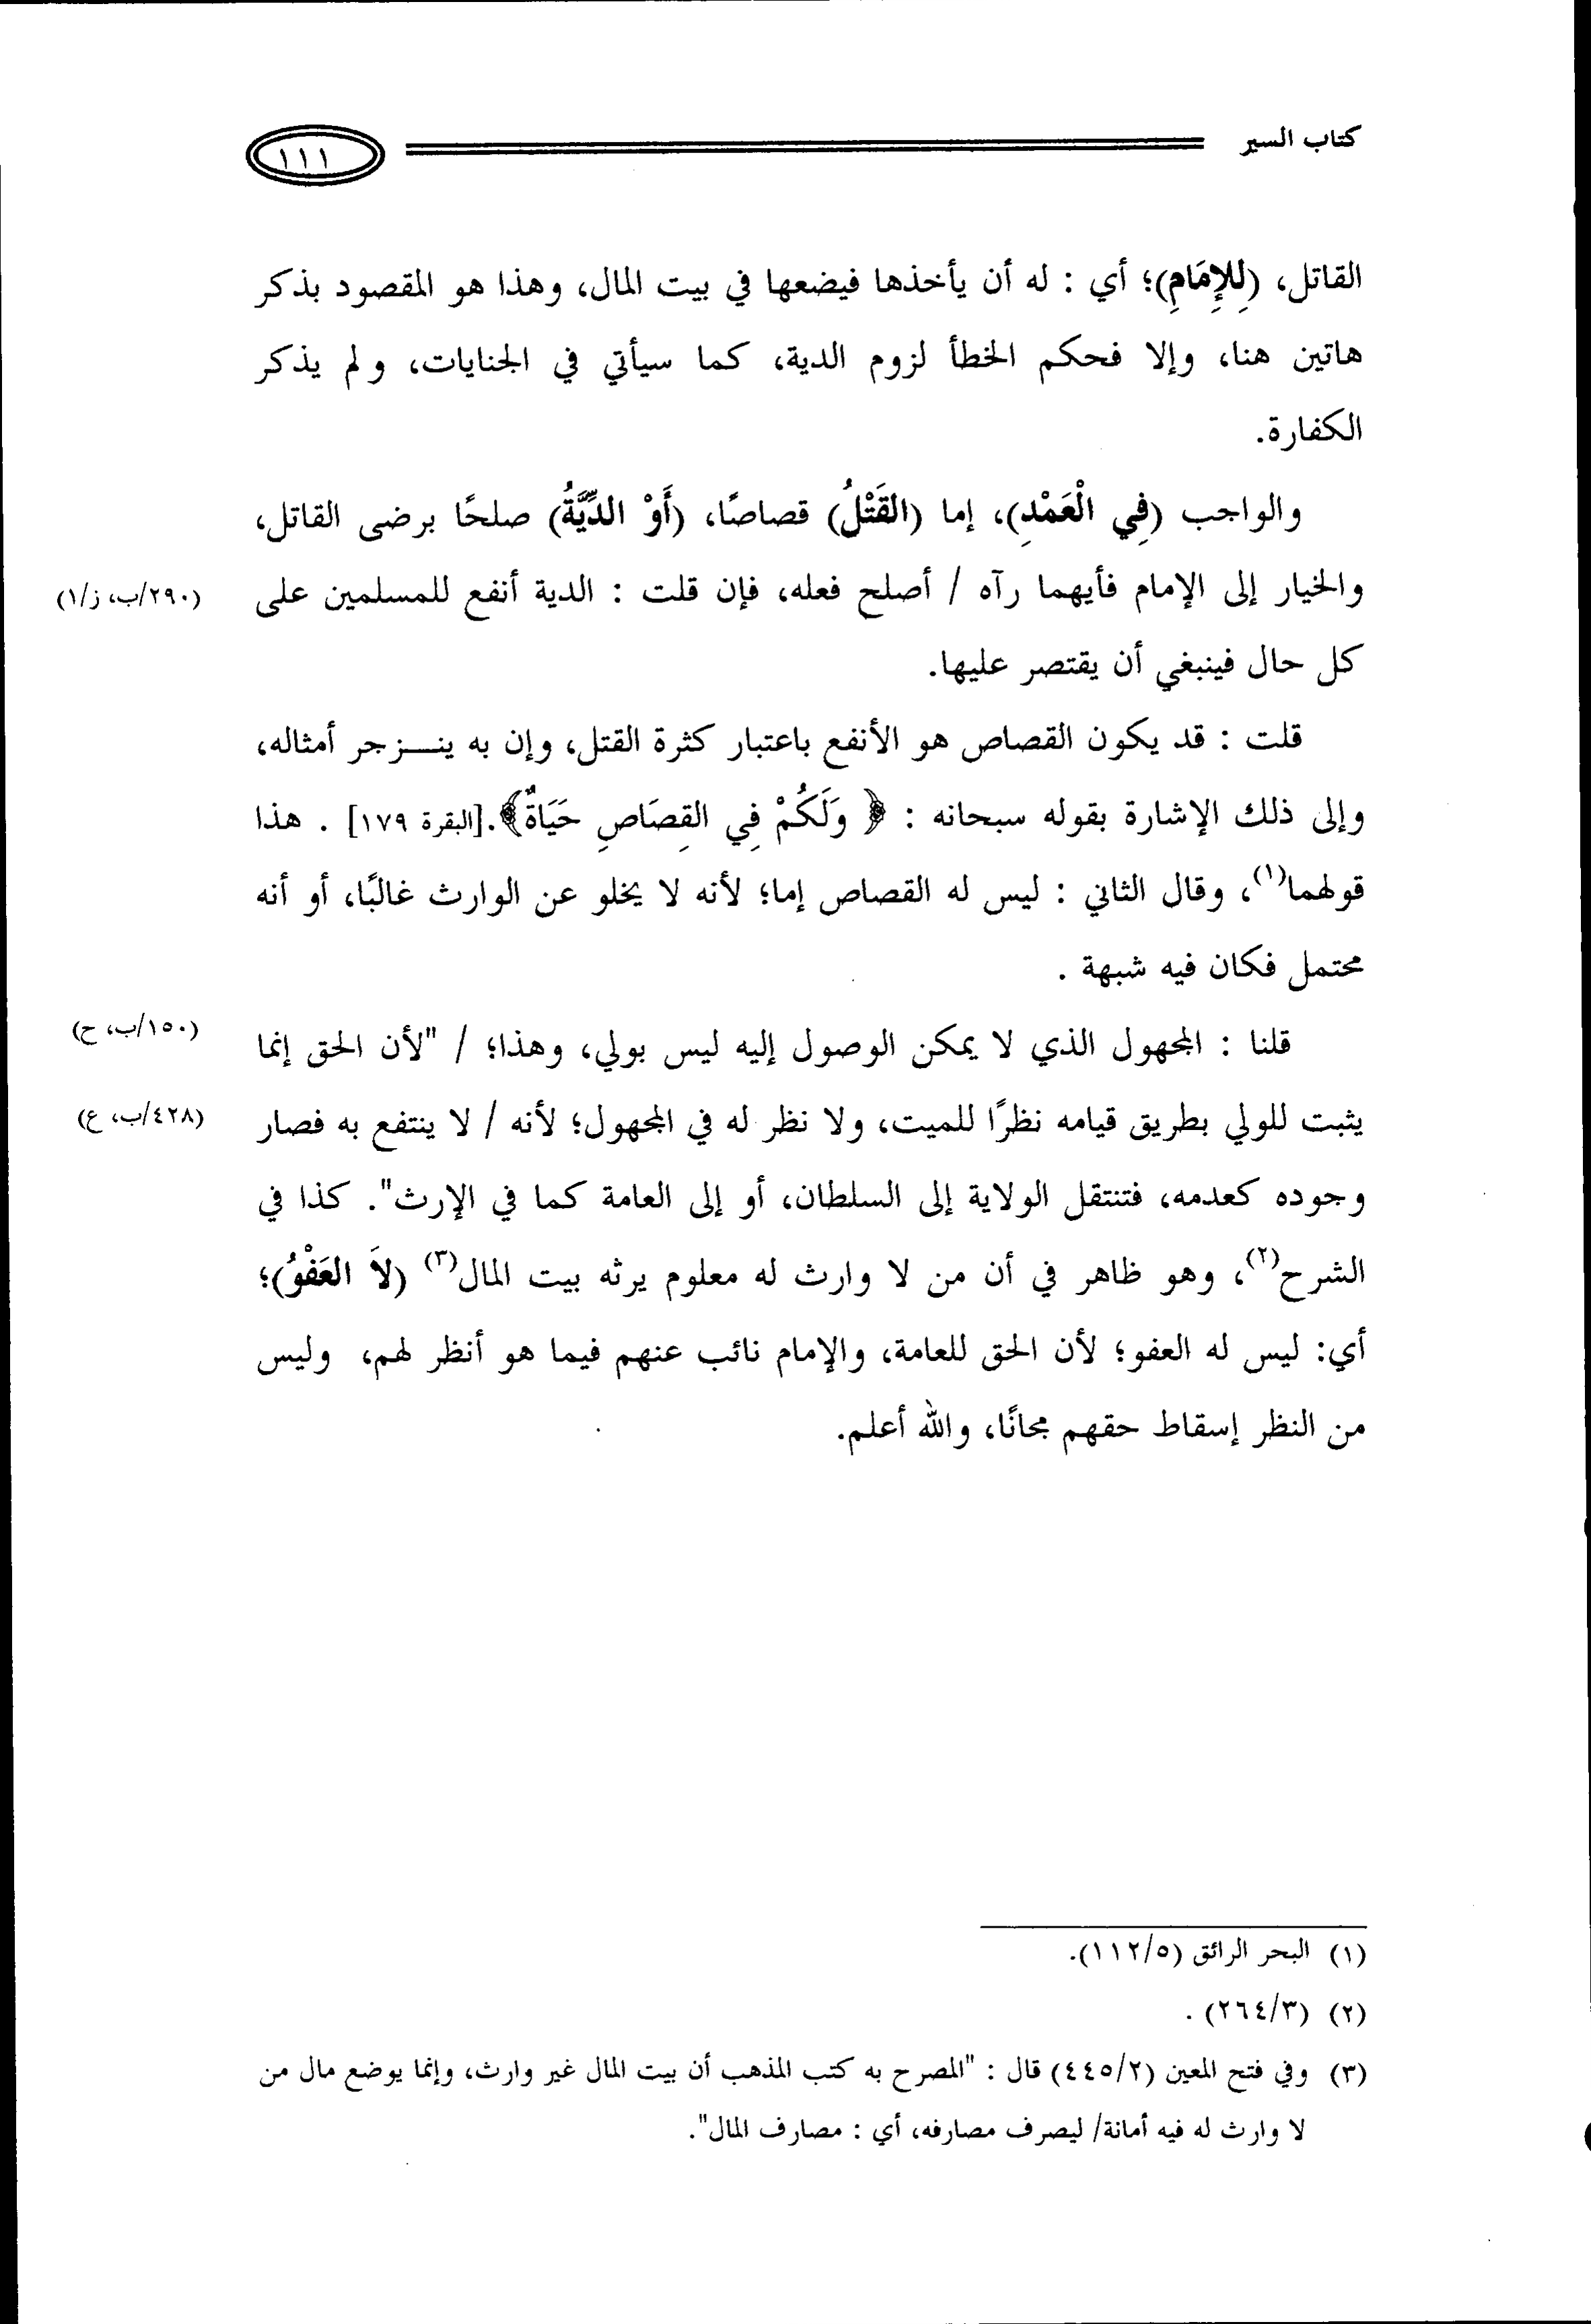 كتاب السير
١١١
القاتل، (لِلإِمَامِ)؛ أي : له أن يأخذها فيضعها في بيت المال، وهذا هو المقصود بذكر
هاتين هنا، وإلا فحكم الخطأ لزوم الدية، كما سيأتي في الجنايات، ولم يذكر
الكفارة.
والواجب (فِي الْعَمْدِ)، إما (القَتْلُ) قصاصًا، (أَوْ الدِّيَّةُ) صلحًا برضى القاتل،
والخيار إلى الإمام فأيهما رآه / أصلح فعله، فإن قلت : الدية أنفع للمسلمين على
(٢٩٠/ب، ز/١)
كل حال فينبغي أن يقتصر عليها.
قلت : قد يكون القصاص هو الأنفع باعتبار كثرة القتل، وإن به ينـــزجر أمثاله،
وإلى ذلك الإشارة بقوله سبحانه : ﴿ وَلَكُمْ فِي القِصَاصِ حَيَاةٌ﴾.[البقرة ١٧٩] . هذا
قولهما(١)، وقال الثاني : ليس له القصاص إما؛ لأنه لا يخلو عن الوارث غالبًا، أو أنه
محتمل فكان فيه شبهة .
قلنا : المجهول الذي لا يمكن الوصول إليه ليس بولي، وهذا؛ / "لأن الحق إنما
(١٥٠/ب، ح)
يثبت للولي بطريق قيامه نظرًا للميت، ولا نظر له في المجهول؛ لأنه / لا ينتفع به فصار
(٤٢٨/ب، ع)
وجوده كعدمه، فتنتقل الولاية إلى السلطان، أو إلى العامة كما في الإرث". كذا في
الشرح(٢)، وهو ظاهر في أن من لا وارث له معلوم يرثه بيت المال(٣) (لاَ العَفْوُ)؛
أي: ليس له العفو؛ لأن الحق للعامة، والإمام نائب عنهم فيما هو أنظر لهم، وليس
من النظر إسقاط حقهم مجانًا، والله أعلم.
(١) البحر الرائق (١١٢/٥).
(٢) (٢٦٤/٣) .
(٣) وفي فتح المعين (٤٤٥/٢) قال : "المصرح به كتب المذهب أن بيت المال غير وارث، وإنما يوضع مال من
لا وارث له فيه أمانة/ ليصرف مصارفه، أي : مصارف المال".